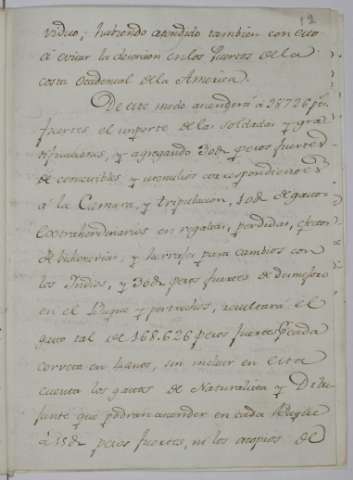 12
viduo; habiendo atendido tambien con esto
á evitar la desercion en los Puertos de la
costa occidental de la America.
De este modo ascenderá á 98726 p.s
fuertes el importe de las soldadas y gra
tificaciones, y agregando 30 d pesos fuertes
de comestibles y utensilios correspondientes
á la Camara, y tripulacion, 10 d de gastos
extrahordinarios en regalos, perdidas, efectos
de bichonerias, y herrajes para cambios con
los Indios, y 30 d pesos fuertes de
en el Buque y pertrechos, resultará el
gasto tal de 168.626 pesos fuertes p.r cada
correta en 4 años, sin incluir en esta
cuenta los gastos de Naturalista y Dibu
jante que podran ascender en cada Buque
á 15 d pesos fuertes, ni los acopios de